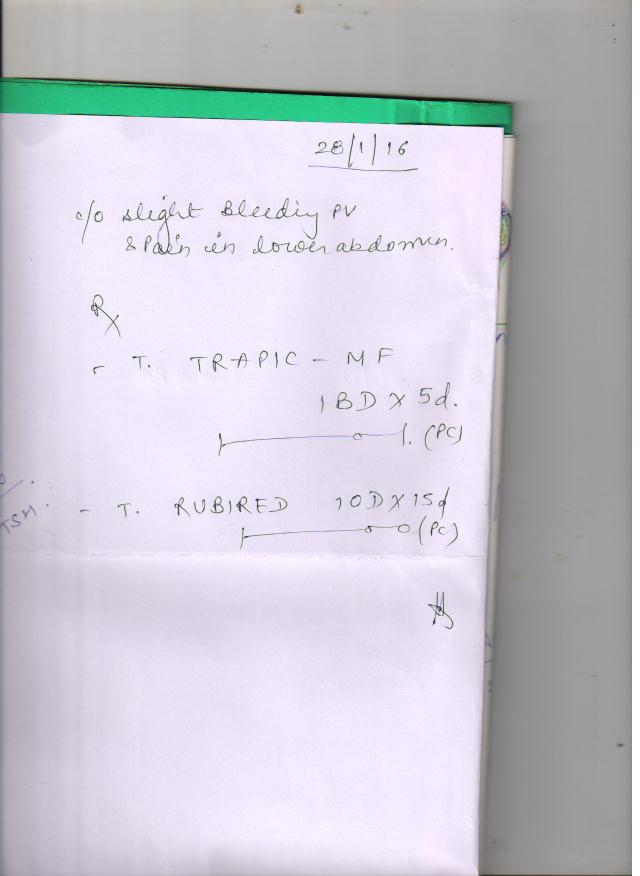 28/1/16
c/o slight Bleeding PV
& Pain in lower abdomen.
Rx
- T. TRAPIC - MF
1 BD X 5d.
1 — o — 1. (PC)
TSH.
- T. RUBIRED 1OD X 15d
1 — o — o (PC)